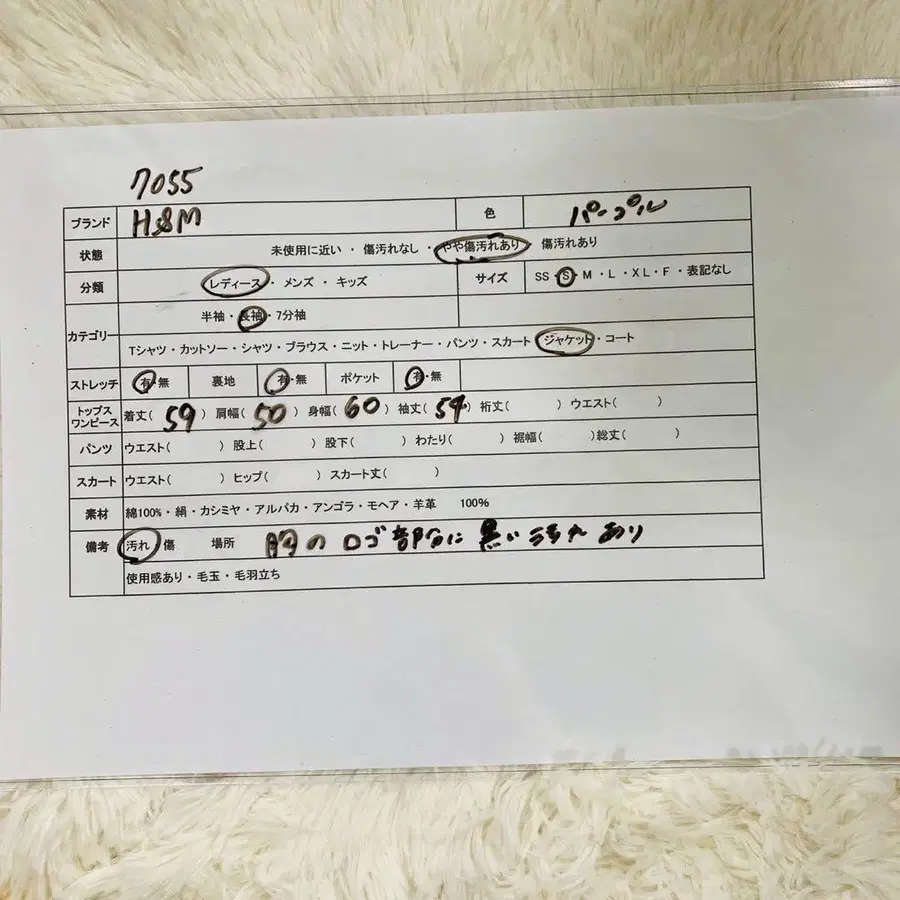 7055
ブランド H&M 色 パープル
状態 未使用に近い ・ 傷汚れなし ・ やや傷汚れあり ・ 傷汚れあり
分類 レディース ・ メンズ ・ キッズ サイズ SS ・ S ・ M ・ L ・ XL ・ F ・ 表記なし
カテゴリー 半袖 ・ 長袖 ・ 7分袖
Tシャツ ・ カットソー ・ シャツ ・ ブラウス ・ ニット ・ トレーナー ・ パンツ ・ スカート ・ ジャケット ・ コート
ストレッチ 有・無 裏地 有・無 ポケット 有・無
トップス ワンピース 着丈( 59 ) 肩幅( 50 ) 身幅( 60 ) 袖丈( 54 ) 裄丈( ) ウエスト( )
パンツ ウエスト( ) 股上( ) 股下( ) わたり( ) 裾幅( )総丈( )
スカート ウエスト( ) ヒップ( ) スカート丈( )
素材 綿100% ・ 絹 ・ カシミヤ ・ アルパカ ・ アンゴラ ・ モヘア ・ 羊革 100%
備考 汚れ ・ 傷 場所 胸のロゴ部分に黒い汚れあり
使用感あり ・ 毛玉 ・ 毛羽立ち